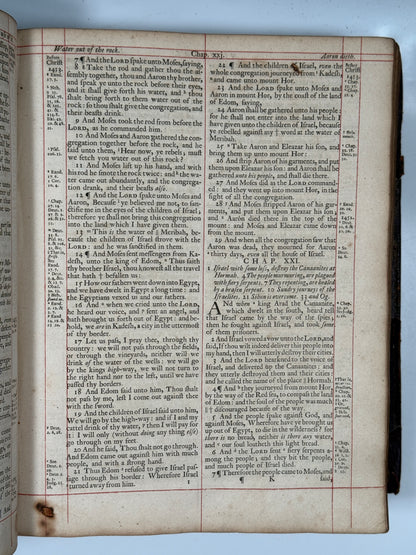 Water out of the rock.
Chap. xxj.
Aaron dieth.
7 ¶ And the LORD spake unto Moses, saying,
8 Take the rod and gather thou the assembly
together, thou and Aaron thy brother,
speak ye unto the rock before their eyes,
and it shall give forth his water, and thou
shalt bring forth to them water out of the
rock: so thou shalt give the congregation, and
their beasts drink.
9 And Moses took the rod from before the
LORD, as he commanded him.
10 And Moses and Aaron gathered the congregation
together before the rock, and he
said unto them, Hear now, ye rebels; must
we fetch you water out of this rock?
11 And Moses lift up his hand, and with
his rod he smote the rock twice: and the water
came out abundantly, and the congregation
drank, and their beasts also.
12 ¶ And the LORD spake unto Moses and
Aaron, Because ye believed me not, to sanctifie
me in the eyes of the children of Israel;
therefore ye shall not bring this congregation
into the land which I have given them.
13 This is the water of Meribah,
because the children of Israel strove with the
LORD: and he was sanctified in them.
14 ¶ And Moses sent messengers from Kadesh,
unto the king of Edom, Thus saith
thy brother Israel, thou knowest all the travel
that hath befallen us:
15 How our fathers went down into Egypt,
and we have dwelt in Egypt a long time: and
the Egyptians vexed us and our fathers.
16 And when we cried unto the LORD,
he heard our voice, and sent an angel, and
hath brought us forth out of Egypt: and behold,
we are in Kadesh, a city in the uttermost
of thy border.
17 Let us pass, I pray thee, through thy
country: we will not pass through the fields,
or through the vineyards, neither will we
drink of the water of the wells: we will go
by the kings high-way, we will not turn to
the right hand nor to the left, until we have
passed thy borders.
18 And Edom said unto him, Thou shalt
not pass by me, lest I come out against thee
with the sword.
19 And the children of Israel said unto him,
We will go by the high-way: and if I and my
cattel drink of thy water, then I will pay for
it: I will only (without doing any thing else)
go through on my feet.
20 And he said, Thou shalt not go through.
And Edom came out against him with much
people, and with a strong hand.
21 Thus Edom refused to give Israel passage
through his border: Wherefore Israel
turned away from him.
22 ¶ And the children of Israel, even the
whole congregation journeyed from Kadesh,
and came unto mount Hor.
23 And the LORD spake unto Moses and
Aaron in mount Hor, by the coast of the land
of Edom, saying,
24 Aaron shall be gathered unto his people:
for he shall not enter into the land which I
have given unto the children of Israel, because
ye rebelled against my word at the water of
Meribah.
25 Take Aaron and Eleazar his son, and
bring them up unto mount Hor:
26 And strip Aaron of his garments, and put
them upon Eleazar his son: and Aaron shall be
gathered unto his people, and shall die there.
27 And Moses did as the LORD commanded:
and they went up unto mount Hor, in the
sight of all the congregation.
28 And Moses stripped Aaron of his garments,
and put them upon Eleazar his son;
and Aaron died there in the top of the
mount: and Moses and Eleazar came down
from the mount.
29 And when all the congregation saw that
Aaron was dead, they mourned for Aaron
thirty days, even all the house of Israel.
CHAP. XXI.
1 Israel with some loss, destroy the Canaanites at
Hormah. 4 The people murmuring, are plagued
with fiery serpents. 7 They repenting, are healed
by a brasen serpent. 10 Sundry journeys of the
Israelites. 21 Sihon is overcome. 33 and Og.
And when king Arad the Canaanite,
which dwelt in the south, heard tell
that Israel came by the way of the spies;
then he fought against Israel, and took some
of them prisoners.
2 And Israel vowed a vow unto the LORD, and
said, If thou wilt indeed deliver this people into
my hand, then I will utterly destroy their cities.
3 And the LORD hearkened to the voice of
Israel, and delivered up the Canaanites: and
they utterly destroyed them and their cities:
and he called the name of the place Hormah.
4 ¶ And they journeyed from mount Hor,
by the way of the Red sea, to compass the land
of Edom: and the soul of the people was much
discouraged because of the way.
5 And the people spake against God, and
against Moses, Wherefore have ye brought us
up out of Egypt, to die in the wilderness? for
there is no bread, neither is there any water,
and our soul loatheth this light bread.
6 And the LORD sent fiery serpents among
the people, and they bit the people,
and much people of Israel died.
7 ¶ Therefore the people came to Moses, and
K
said,